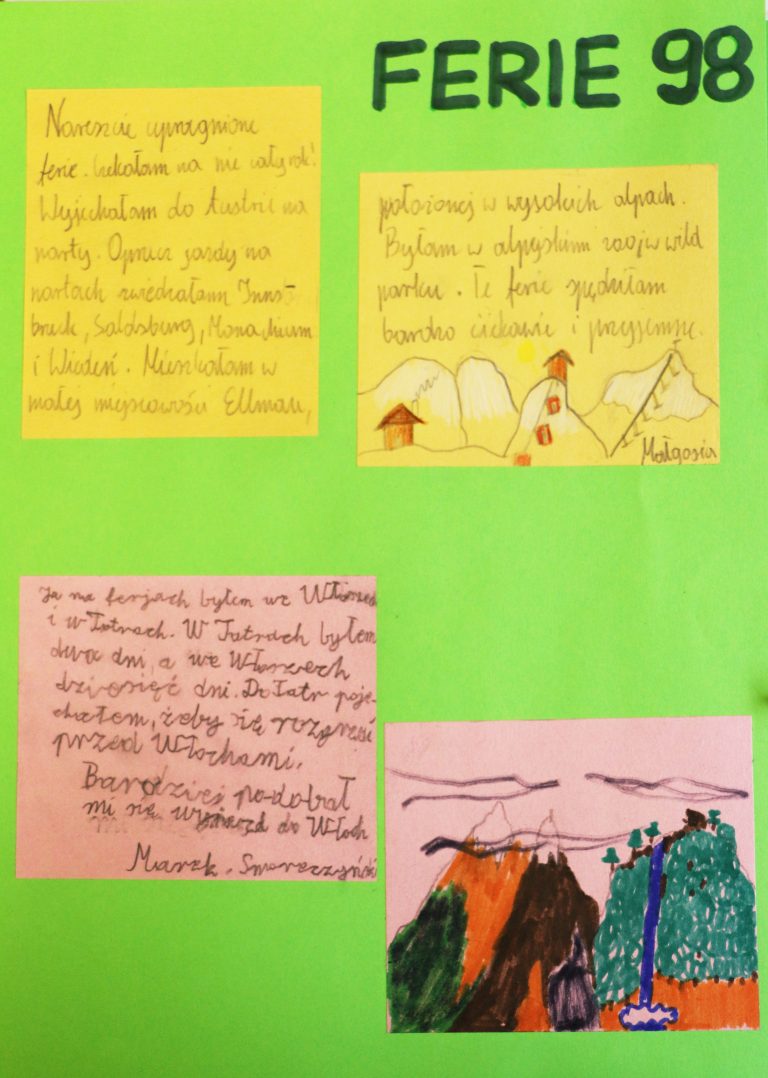 FERIE 98
Nareszcie upragnione
ferie. Czekałam na nie cały rok!
Wyjechałam do Austrii na
narty. Oprócz jazdy na
nartach zwiedzałam Inns-
bruck, Saldsburg, Monachium
i Wiedeń. Mieszkałam w
małej miejscowości Ellmau,
położonej w wysokich alpach.
Byłam w alpejskim zoo w wild
parku. Te ferie spędziłam
bardzo ciekawie i przyjemnie.
Małgosia
Ja na ferjach byłem we Włoszech
i w Tatrach. W Tatrach byłem
dwa dni, a we Włoszech
dziesięć dni. Do Tatr poje-
chałem, żeby się rozgrzać
przed Włochami.
Bardziej podobał
mi się wyjazd do Włoch
Marek Smoreczyński